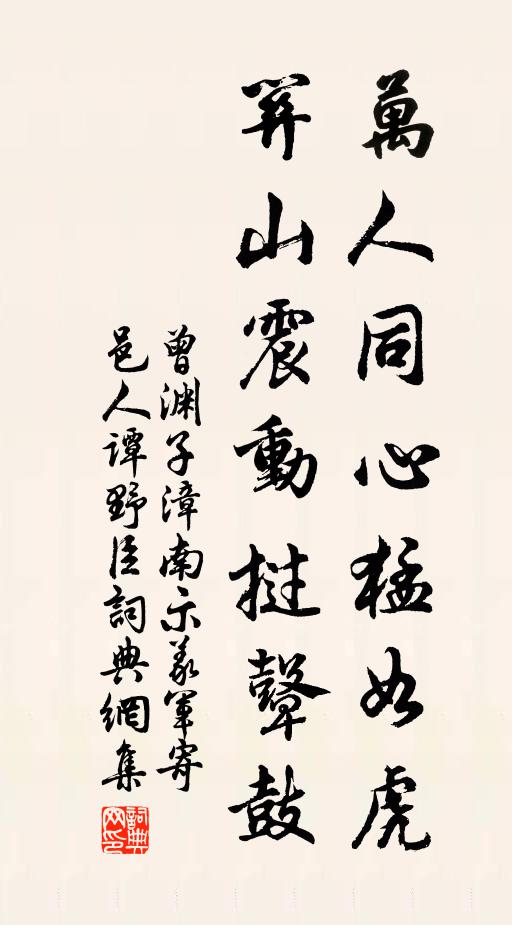 萬人同心猛如虎
羿山震動挞鼙鼓
曾渊子漳南示義軍寄
邑人谭野臣詞典網集
詞典
网印